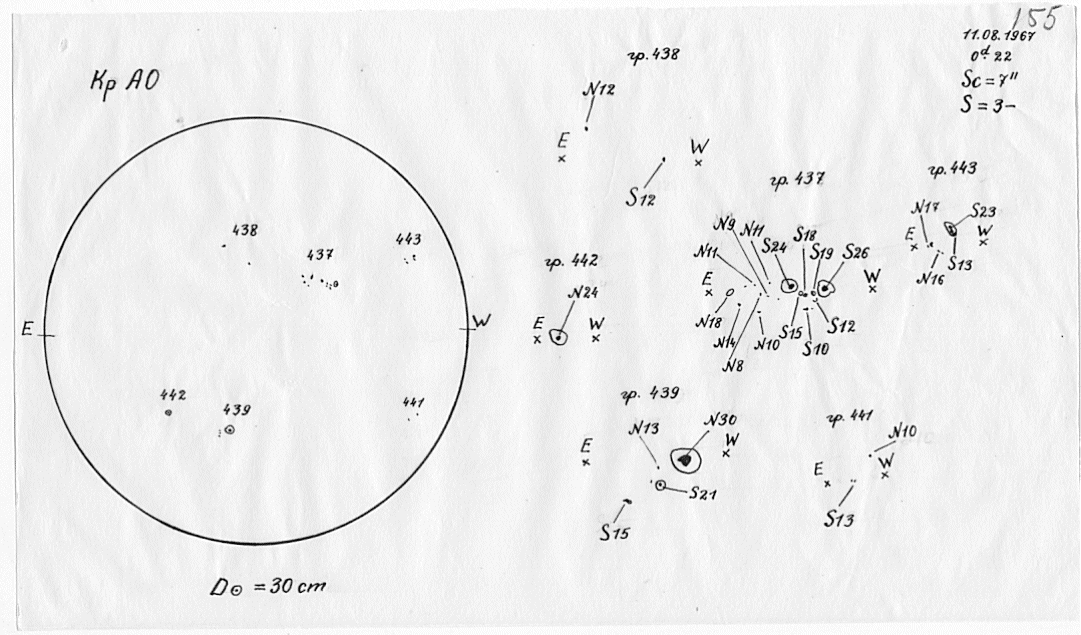 155
11.08.1967
0ᵈ 22
Sc = 7"
S = 3–
Кр АО
438
437
443
E
W
442
439
441
D⊙ = 30 cm
гр. 438
N12
E
W
S12
гр. 437
N9
N11
S18
N11
S24
S19
S26
E
W
N18
N14
N8
N10
S15
S10
S12
гр. 443
N17
S23
E
W
N16
S13
гр. 442
N24
E
W
гр. 439
N13
N30
E
W
S21
S15
гр. 441
N10
E
W
S13